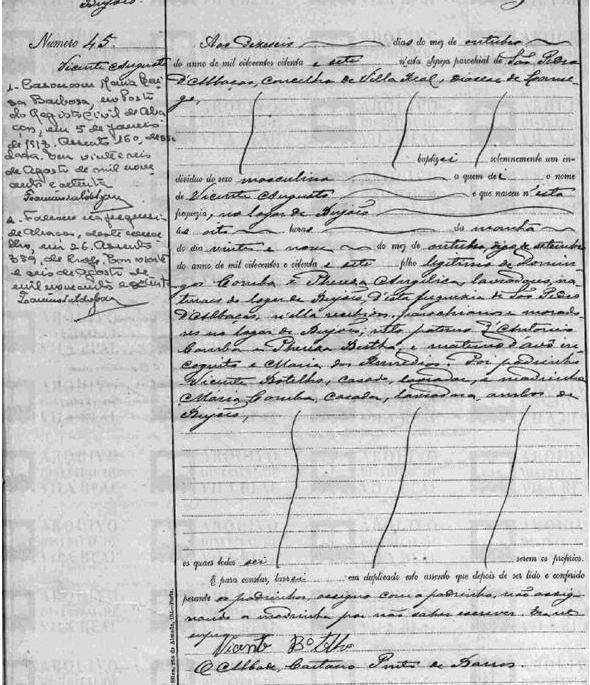 Numero 45.
Vicente Augusto
1. Casou com Maria
Barbosa, no Posto
do Registo Civil de Aba
ças, em 5 de Janeiro
de 1913. Assento 160,
vinte e seis
de Agosto de mil nove
centos e oitenta
2. Faleceu na freguesia
de Abaças, deste conce
lho, em 26. Assento
339, de Bom vinte
e seis de Agosto de
mil novecentos e oitenta
Aos Dezeseis dias do mez de outubro
do anno de mil oitocentos e oitenta e sete n'esta Igreja parochial de São Pedro
d'Abbaças, concelho de Villa Real, diocese de
baptizei solemnemente um in-
dividuo do sexo masculino a quem dei o nome
de Vicente Augusto e que nasceu n'esta
freguezia, no logar de Bujões
ás oito horas da manhã
do dia vinte e nove do mez de outubro, digo de setembro
do anno de mil oitocentos e oitenta e sete filho legitimo de Domin
gos Correia e Thereza Angelica, lavradores, na
turaes do logar de Bujões, d'esta freguezia de São Pedro
d'Abbaças, n'ella recebidos, parochianos e morado
res no logar de Bujões, neto paterno d'Antonio
Correia e Thereza e materno d'avô in
cognito e Maria dos Remedios. Foi padrinho
Vicente Botelho, casado, lavrador, e madrinha
Maria Correia, casada, lavradora, ambos de
Bujões,
os quaes todos sei serem os proprios.
E para constar, lavrei em duplicado este assento que depois de ser lido e conferido
perante os padrinhos, assigno com o padrinho, não assig
nando a madrinha por não saber escrever. Era ut
supra.
Vicente Botelho
O Abbade, Caetano Pinto de Barros.